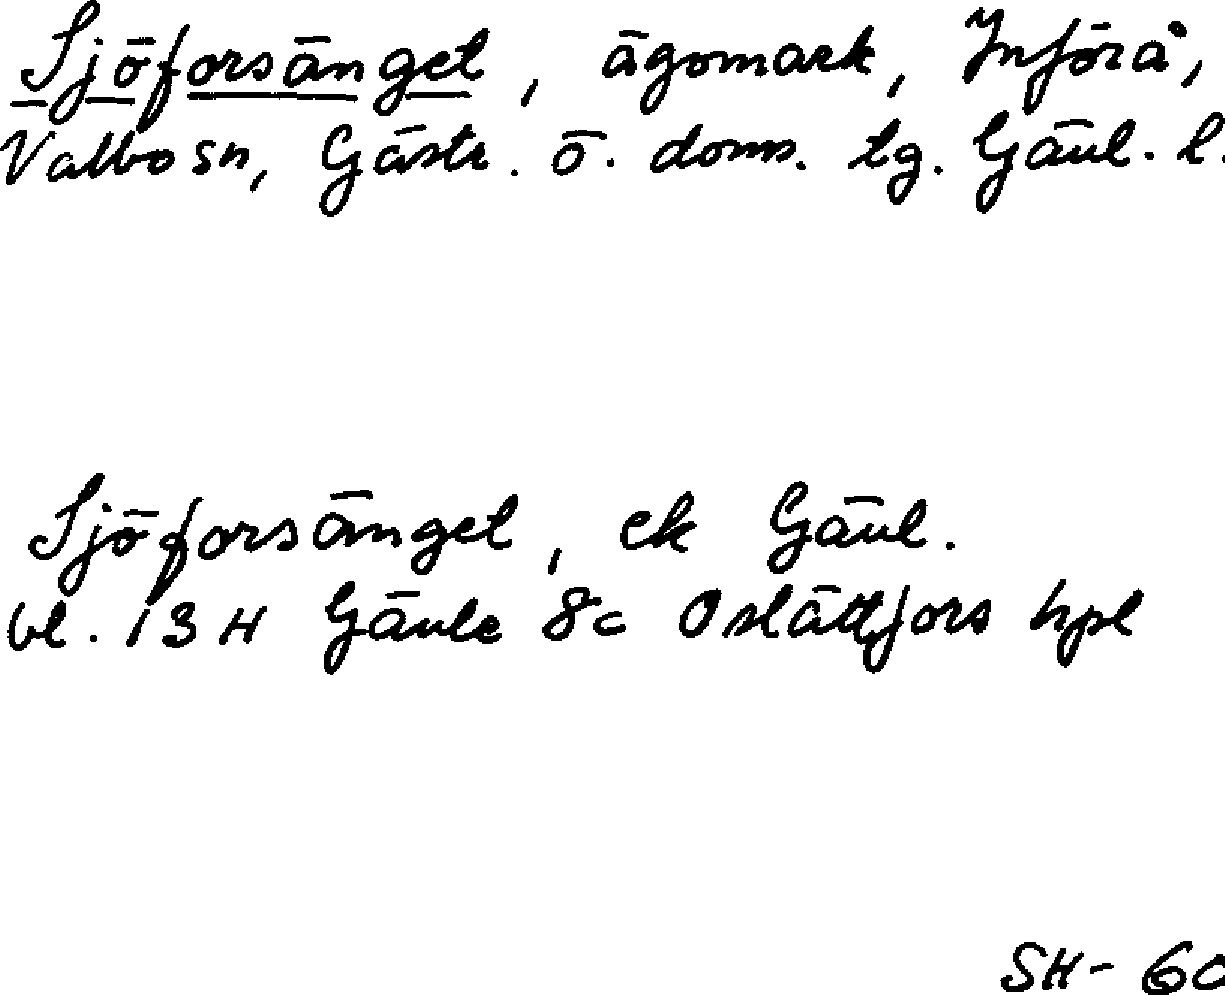 Sjöforsänget, ägomark, Införå,
Valbo sn, Gästr. ö. doms. tg. Gävl. l.
Sjöforsänget, ek Gävl.
bl. 13 H Gävle 8c Oslättfors hpl
SH-60